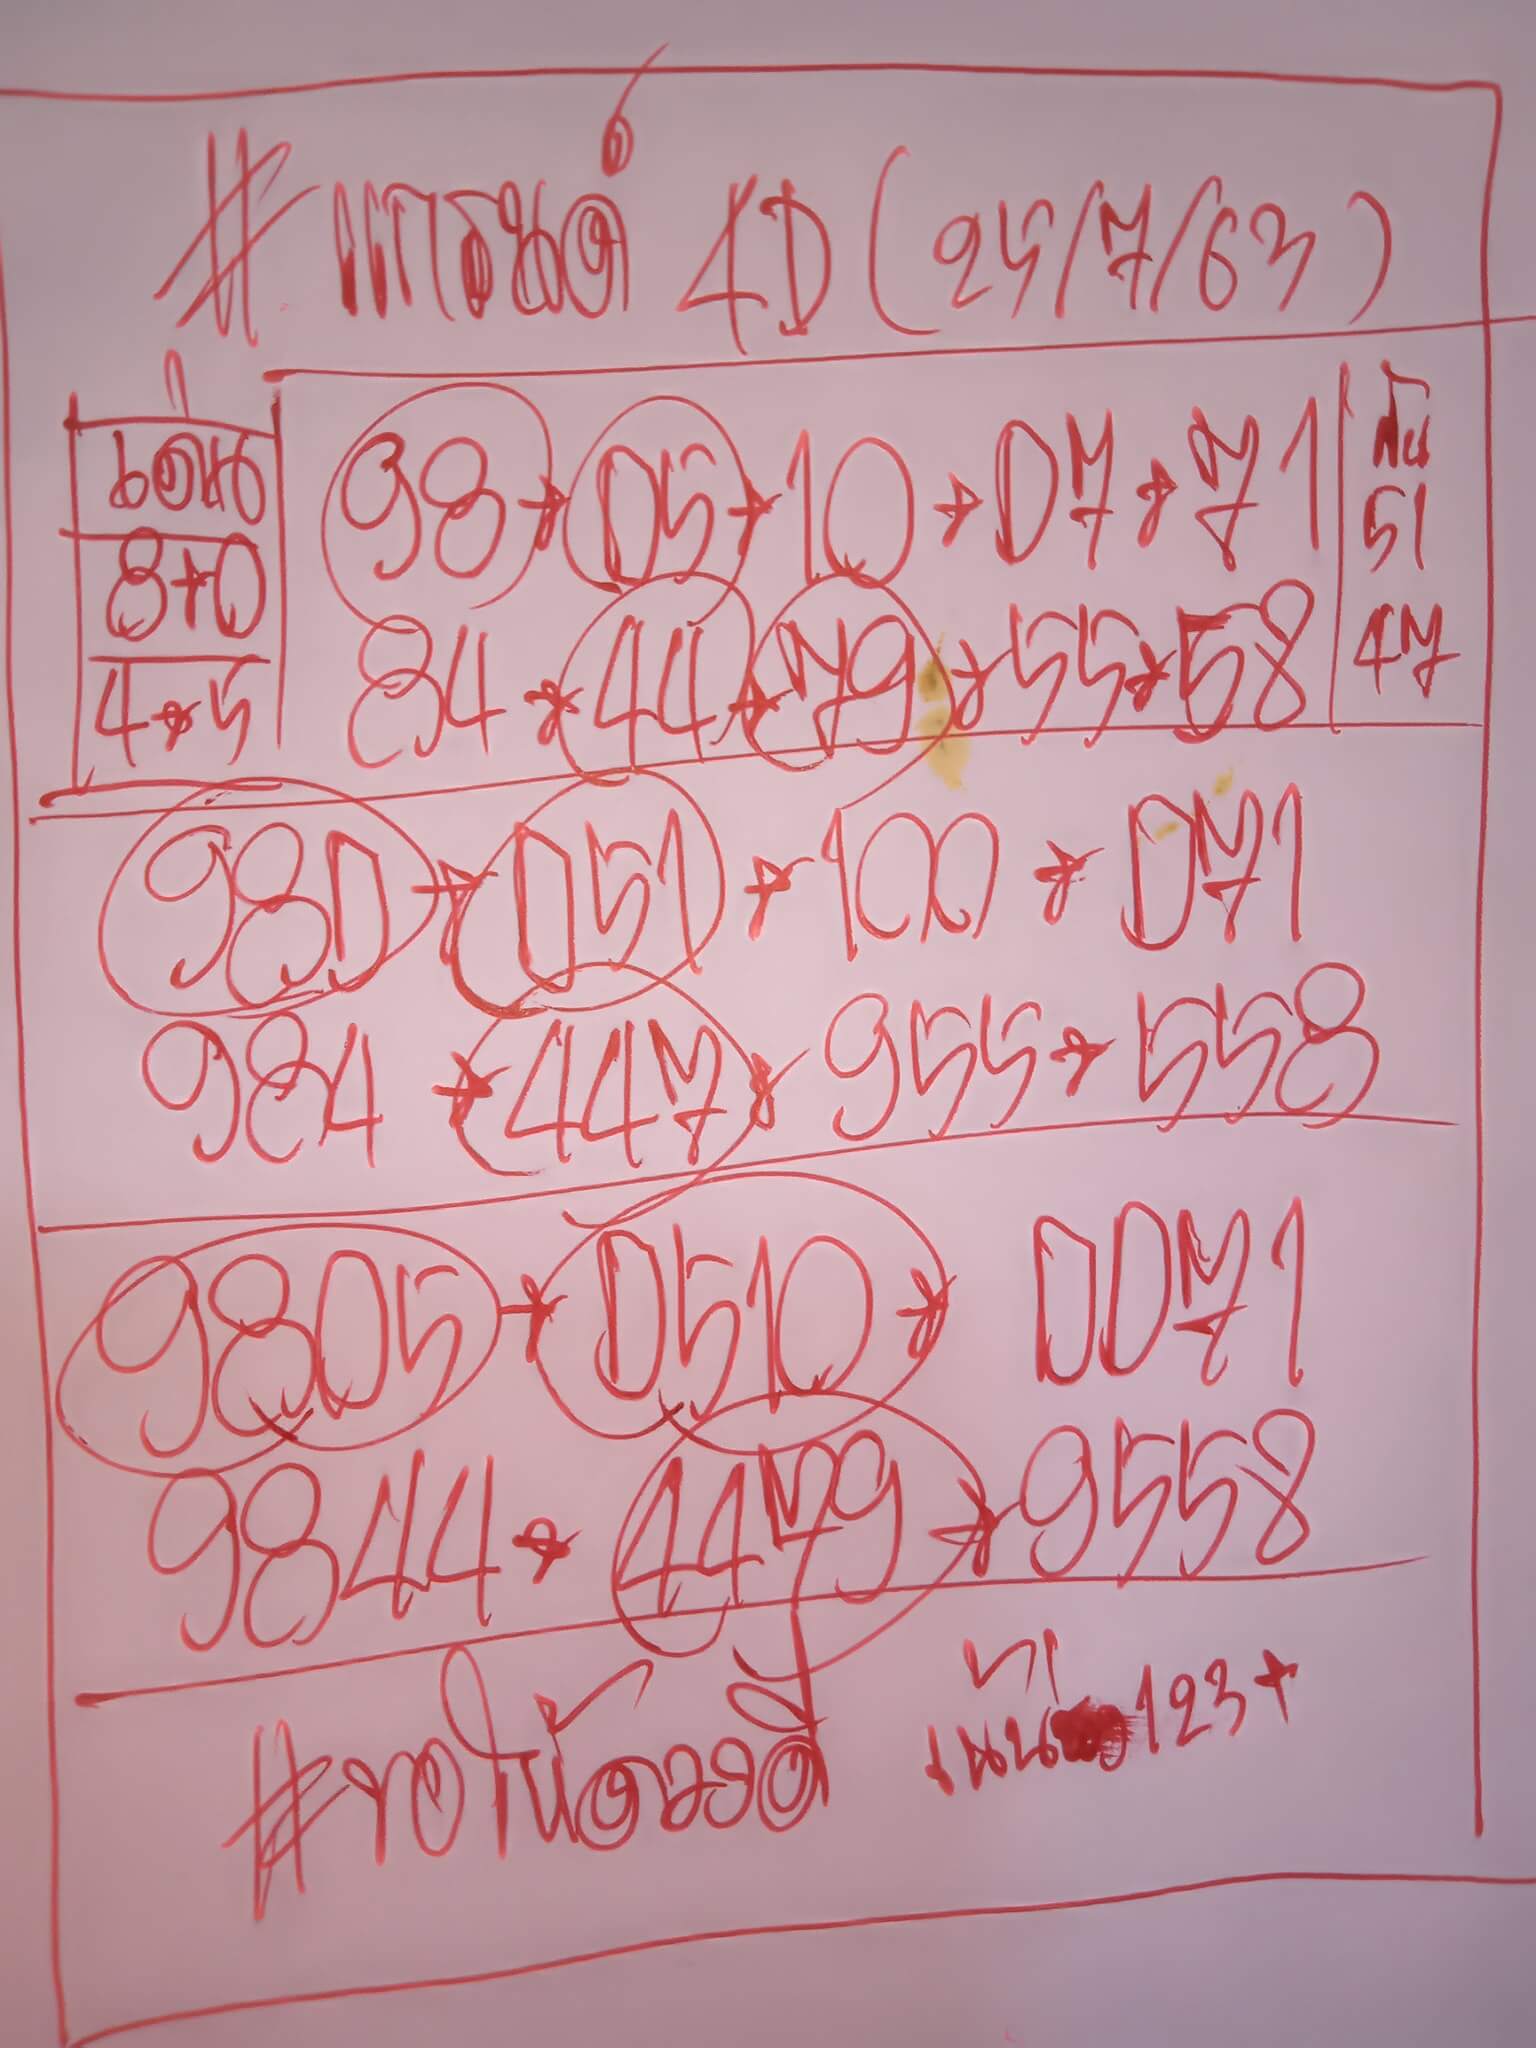 # มาเลย์ 4D (25/7/63)
เด่น
8+0
4+5
98+05+10+07+71
84+44+79+55+58
ลับ
51
47
980+051+100+071
984+447+955+558
9805+0510+0071
9844+4479+9558
#ขอให้ดวงดี 123+